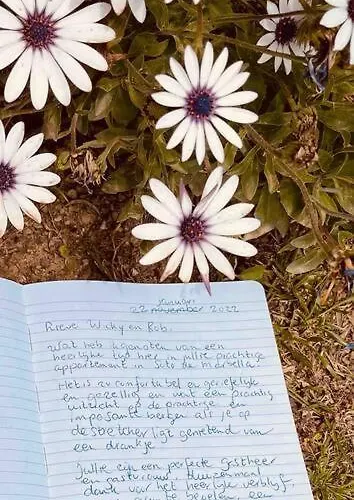 januari
22 november 2022
Lieve Wicky en Bob,
Wat heb ik genoten van een
heerlijke tijd hier in jullie prachtige
appartement in Soto de Marbella.
Het is zo comfortabel en geriefelijk
en gezellig en wat een prachtig
uitzicht op de prachtige en
imposante bergen als je op
de stretcher ligt genietend van
een drankje.
Jullie zijn een perfecte gastheer
en gastvrouw
dank voor het heerlijke verblijf
een